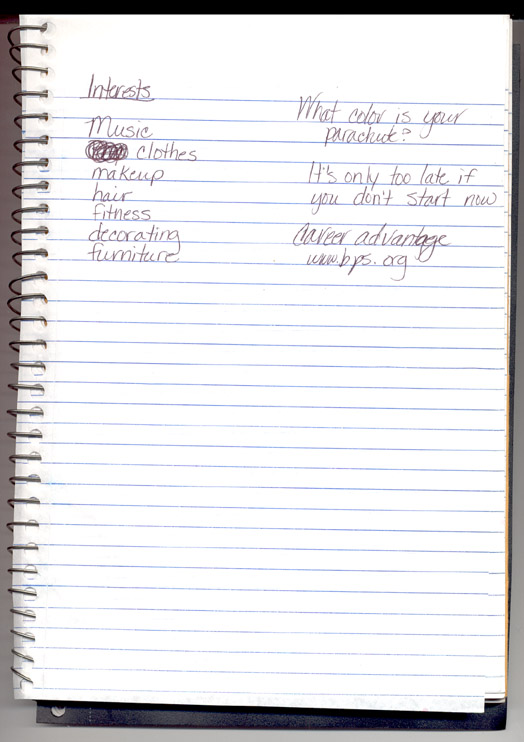 Interests
Music
clothes
makeup
hair
fitness
decorating
furniture
What color is your
parachute?
It's only too late if
you don't start now
Career advantage
www.bps.org